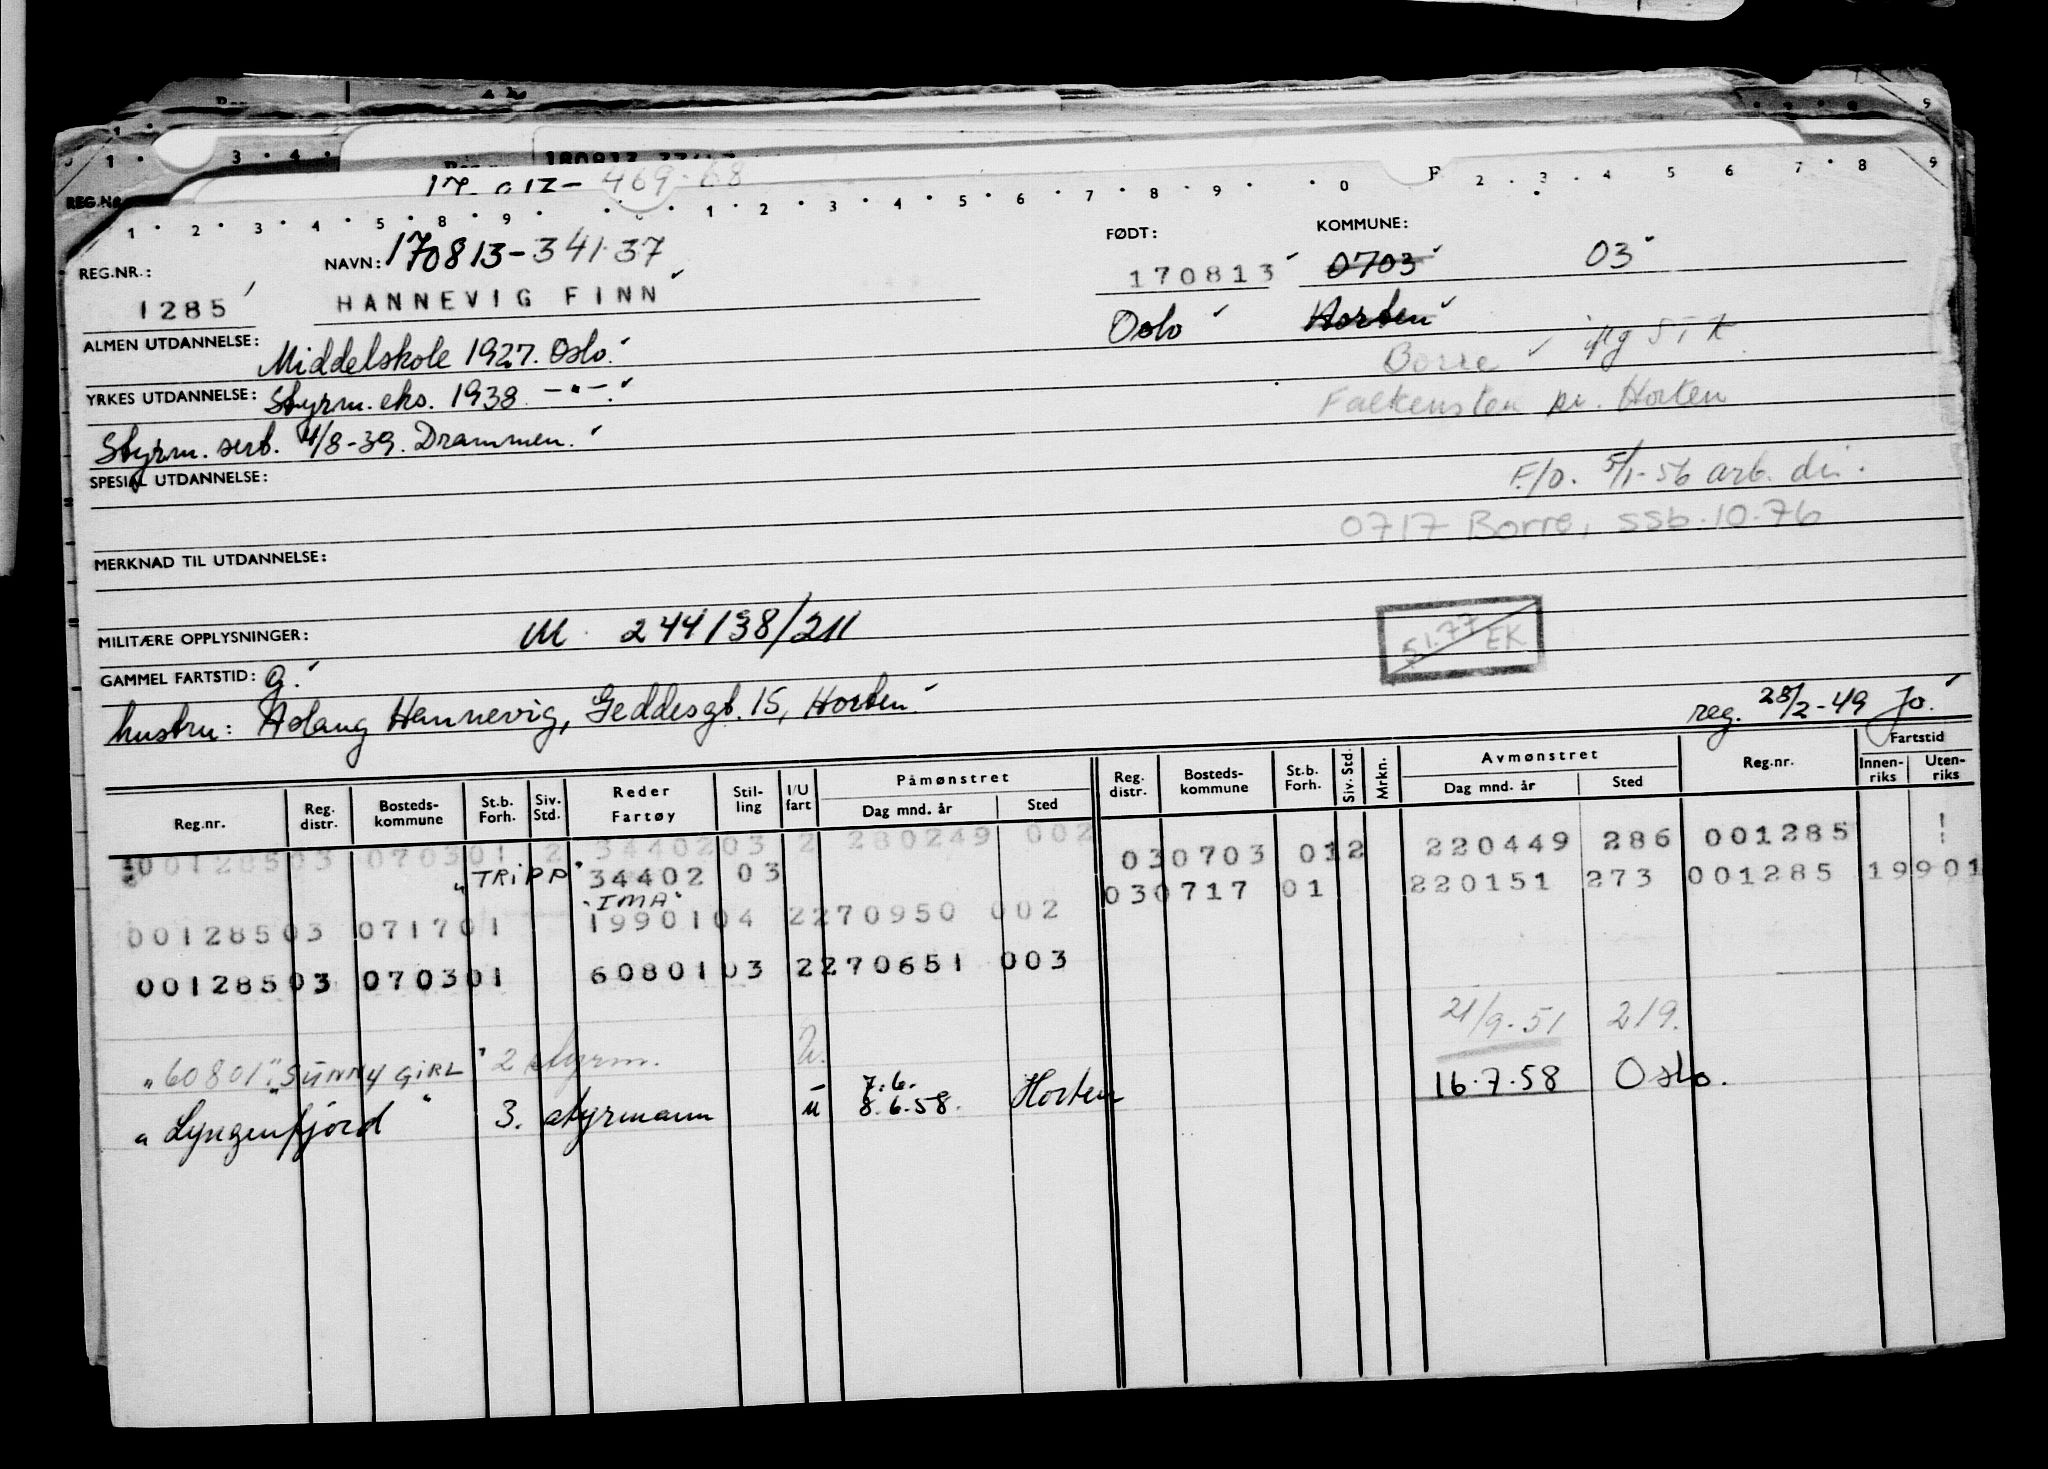 180813
17 017- 469-68
REG.NR.: 1285
NAVN: 170813-34137
HANNEVIG FINN
FØDT: 170813
Oslo
KOMMUNE: 0703 03
Horten
ALMEN UTDANNELSE: Middelskole 1927. Oslo.
Borre
YRKES UTDANNELSE: Styrm. eks. 1938 -"-
Falkensten pr. Horten
Styrm. sert. 4/8-39. Drammen.
SPESIAL UTDANNELSE:
F/O. 5/1-56 arb. dir.
0717 Borre, SSb.10.76
MERKNAD TIL UTDANNELSE:
MILITÆRE OPPLYSNINGER: M 244138/211
5.1.77 EK
GAMMEL FARTSTID: g.
hustru: Aslaug Hannevig, Geddesgt. 15, Horten
reg. 28/2-49 Jo.
Reg.nr. Reg. distr. Bosteds-kommune St.b. Forh. Siv. Std. Reder Fartøy Stil-ling I/U fart Påmønstret Dag mnd. år Sted Reg. distr. Bosteds-kommune St.b. Forh. Siv. Std. Mrkn. Avmønstret Dag mnd. år Sted Reg.nr. Fartstid Innen-riks Uten-riks
00128503 070301 2 3440203 2 280249 002 030703 012 220449 286 001285
"TRIPP" 34402 03 030717 01 220151 273 001285 19901
"IMA"
00128503 071701 1990104 2270950 002
00128503 070301 6080103 2270651 003
21/9-51 219.
"60801" "SUNNY GIRL" 2 styrm. U.
7.6.
"Lyngenfjord" 3. styrmann u 8.6.58. Horten 16.7.58 Oslo.